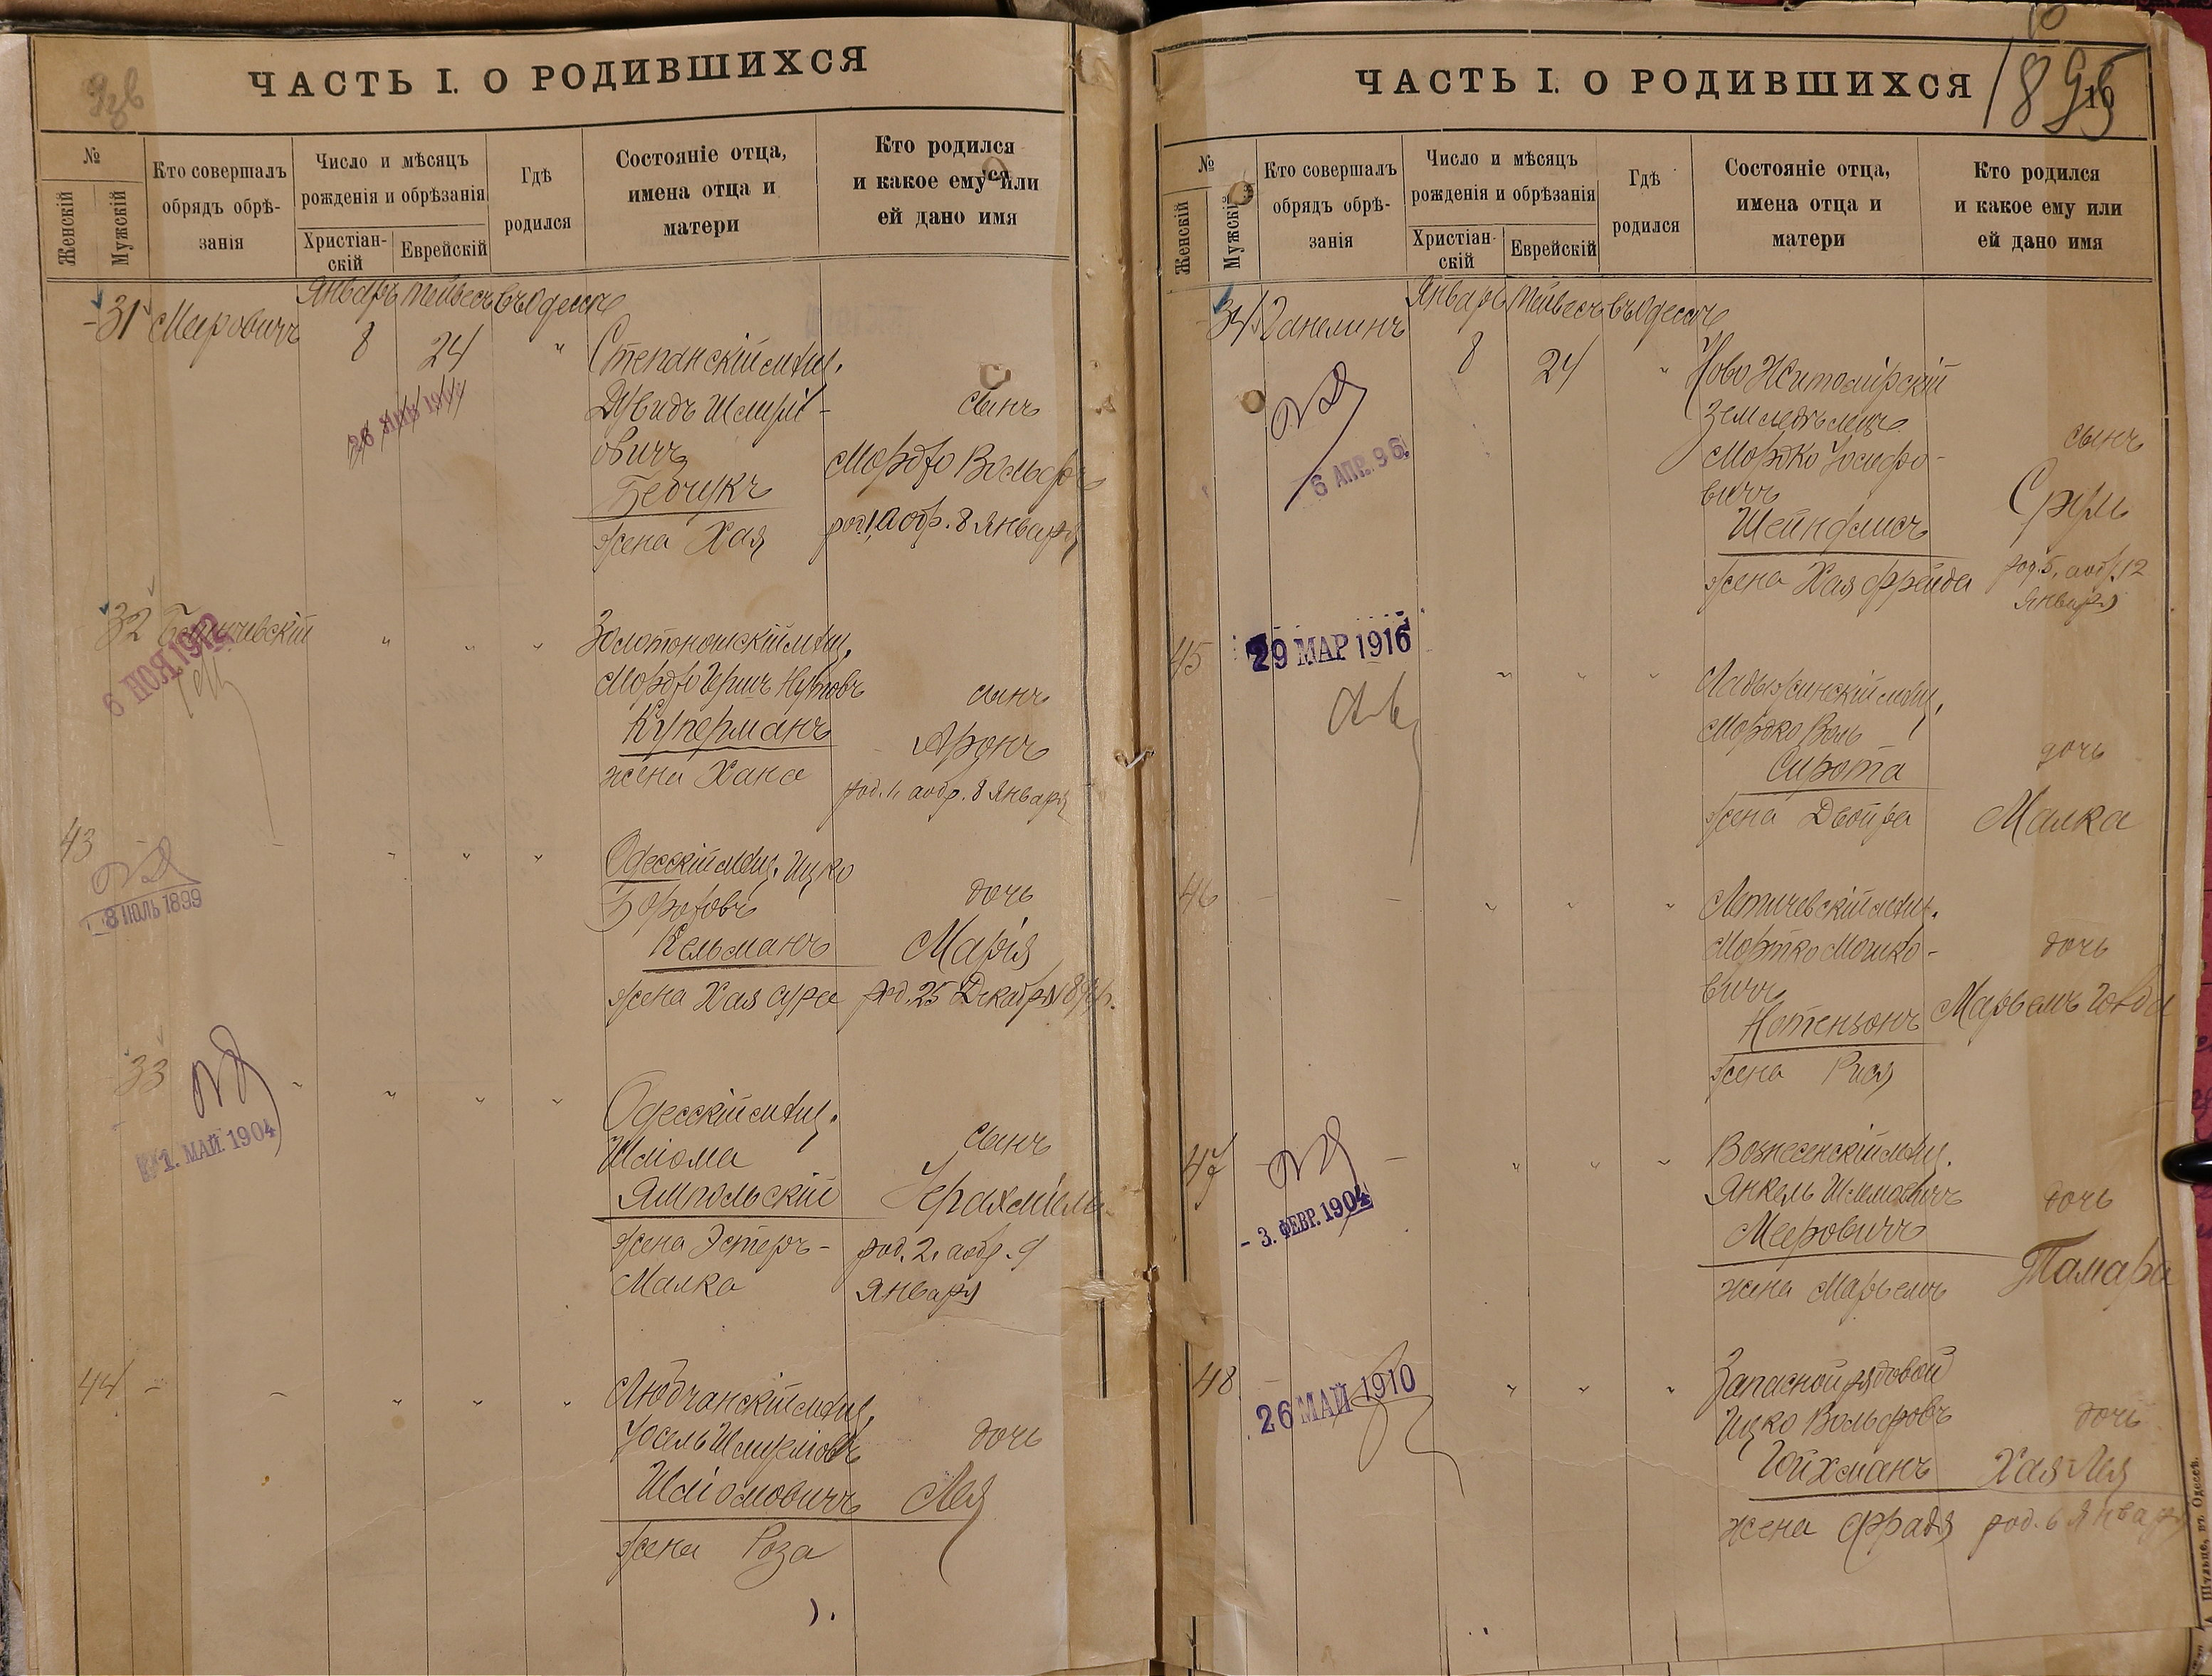 ЧАСТЬ I. О РОДИВШИХСЯ
№
Женскій
Мужской
Кто совершалъ
обрядъ обрѣ-
занія
Число и мѣсяцъ
рожденія и обрѣзанія
Христіан-
скій
Еврейскій
Гдѣ
родился
Состояніе отца,
имена отца и
матери
Кто родился
и какое ему или
ей дано имя
Январь Тейвесъ въ Одессе
31 Мееровичъ 8 24 "
Степанскій мѣщ.
Дувидъ
овичъ
сынъ
Бебчукъ
Мордко Вольфъ
жена Хая
род. 1, а обр. 8 Января
32
6 НОЯ 1912
Золотоношскій мѣщ.
Мордко Гершъ
Куперманъ
жена Хана
сынъ
Аронъ
род. 1, а обр. 8 Января
43
8 ІЮЛЬ 1899
Одесскій мѣщ. Ицко
Кельманъ
жена Хая Сура
дочь
Марія
род. 25 Декабря 1894 г.
33
1. МАЙ. 1904
Одесскій мѣщ.
Шліома
Ямпольскій
жена Эстеръ-
Малка
сынъ
Іерахміель
род. 2, а обр. 9
Января
44
Любчанскій мѣщ.
Іосель
Шліомовичъ
жена Роза
дочь
Лея
ЧАСТЬ I. О РОДИВШИХСЯ
10
1895
16
№
Женскій
Мужскій
Кто совершалъ
обрядъ обрѣ-
занія
Число и мѣсяцъ
рожденія и обрѣзанія
Христіан-
скій
Еврейскій
Гдѣ
родился
Состояніе отца,
имена отца и
матери
Кто родился
и какое ему или
ей дано имя
Январь Тейвесъ въ Одессе
34 Ганелинъ 8 24 "
6 АПР. 96
Ново Житомірскій
земледѣлецъ
Мордко Іосифо-
вичъ
Шейнфлисъ
жена Хая Фрейда
сынъ
Сруль
род. 5, а обр. 12
Января
45
29 МАР 1916
Ладыжинскій мѣщ.
Мордко Воль
Сирота
жена Двойра
дочь
Малка
46
Летичевскій мѣщ.
Мортко Мошко-
вичъ
Нотензонъ
жена Рися
дочь
Марьемъ Голда
47
- 3. ФЕВР. 1904
Вознесенскій мѣщ.
Янкель Шлемовичъ
Мееровичъ
жена Марьемъ
дочь
Тамара
48
26 МАЙ 1910
Запасной рядовой
Ицко Вольфовъ
Гойхманъ
жена Фрадя
дочь
Хая Лея
род. 6 Января